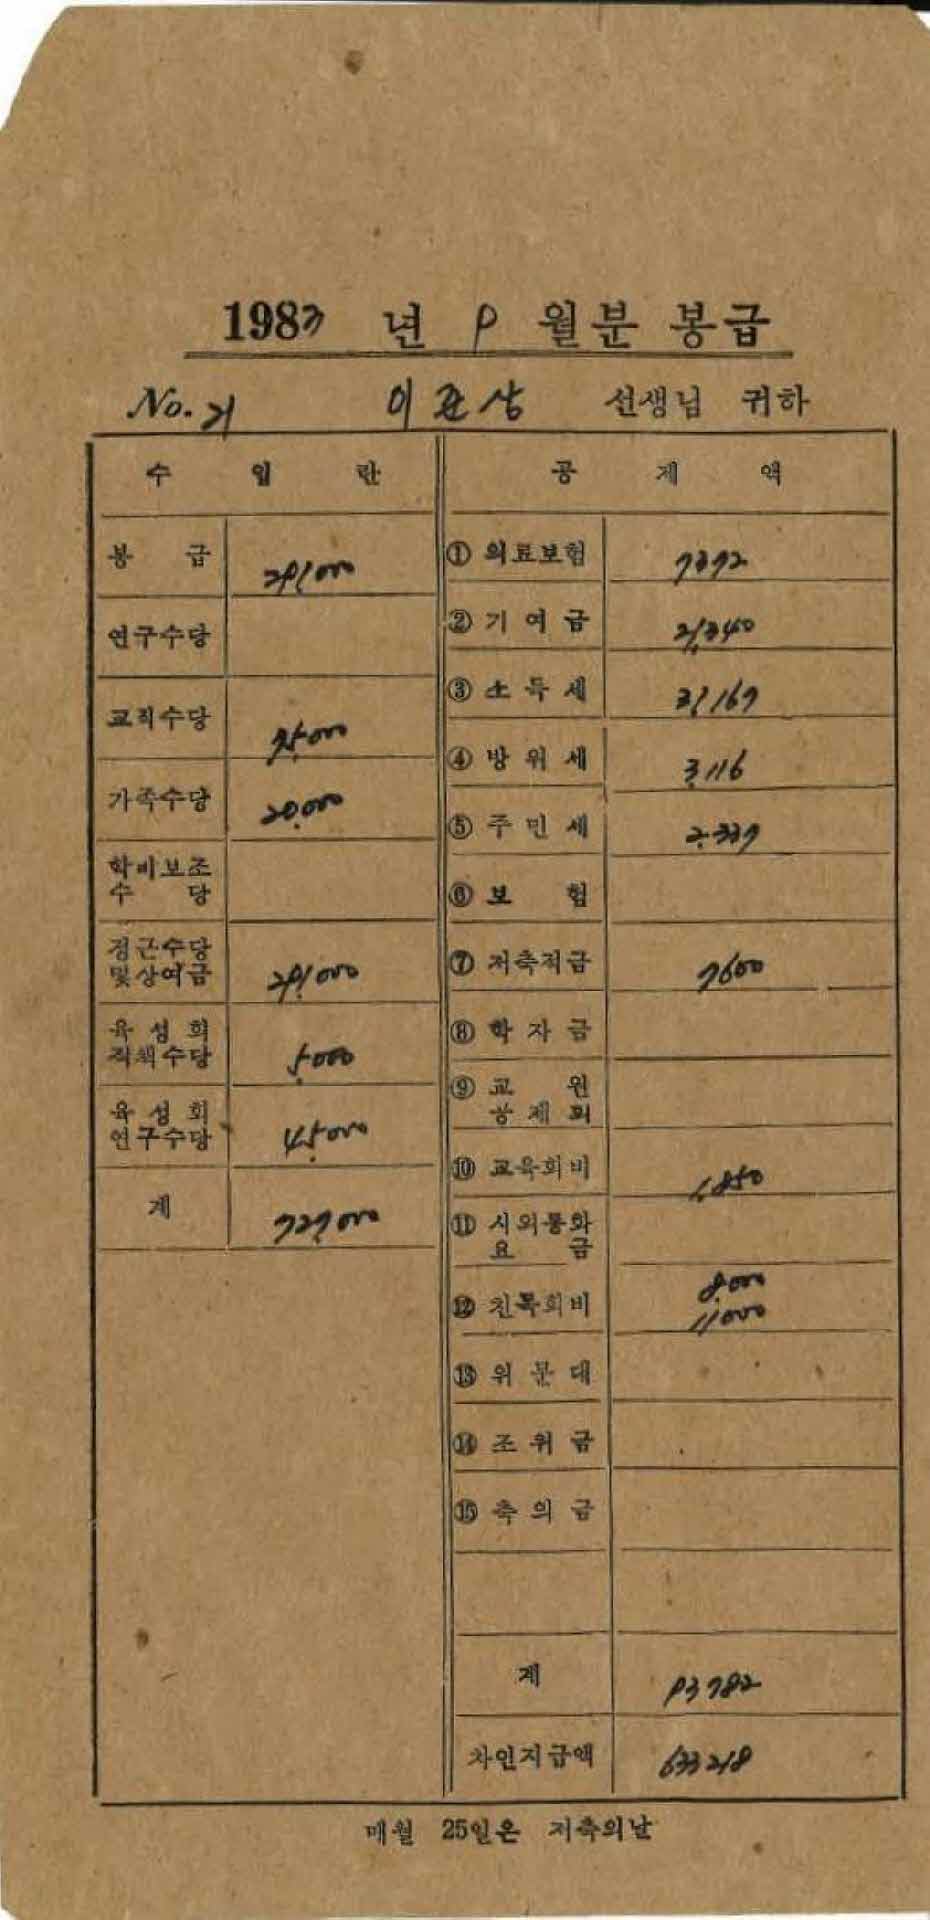 1983 년 9 월분 봉급
No. 21 이관상 선생님 귀하
수 입 란
봉 급 291,000
연구수당
교직수당 75,000
가족수당 20,000
학비보조
수 당
정근수당
및상여금 291,000
육성회
직책수당 5,000
육성회
연구수당 45,000
계 727,000
공 제 액
① 의료보험 7372
② 기여금 21,340
③ 소득세 31,167
④ 방위세 3,116
⑤ 주민세 2,337
⑥ 보 험
⑦ 저축적금 7600
⑧ 학자금
⑨ 교 원
공제회
⑩ 교육회비 1,850
⑪ 시외통화
요 금
⑫ 친목회비 8,000
11,000
⑬ 위문대
⑭ 조위금
⑮ 축의금
계 93782
차인지급액 633218
매월 25일은 저축의날